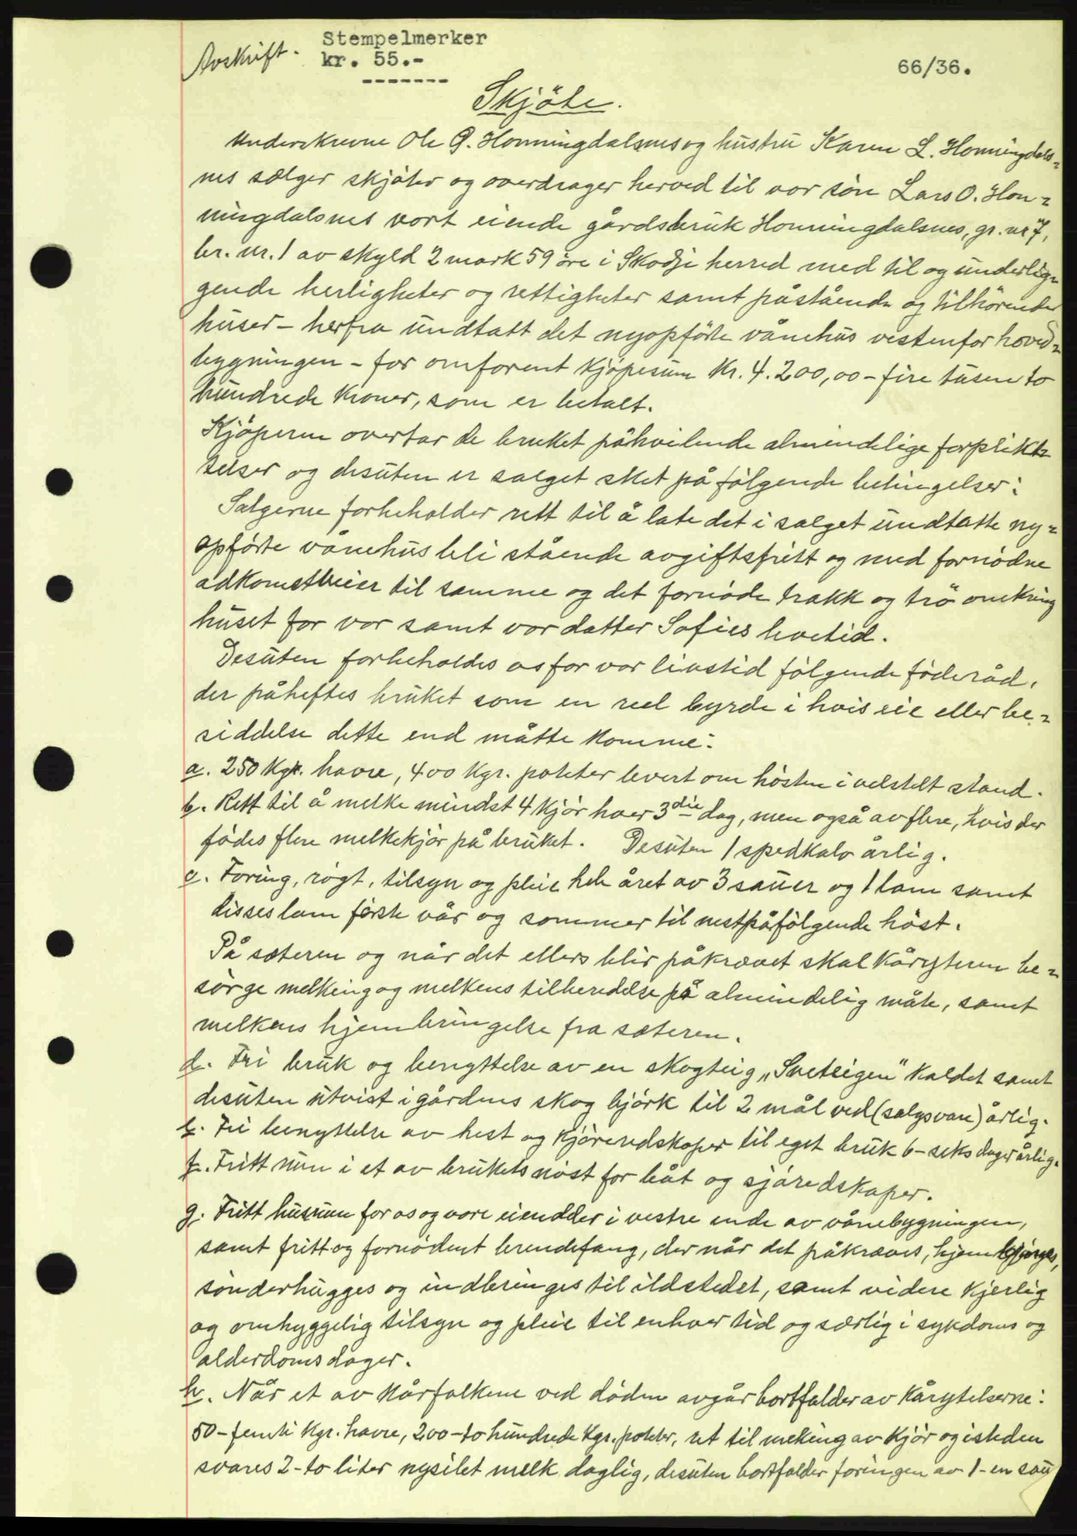 Avskrift. Stempelmerker
kr. 55.-
66/36.
Skjöte.
Underskrevne Ole P. Honningdalsnes og hustru Karen L. Honningdals-
nes sælger skjöter og overdrager herved til vor sön Lars O. Hon-
ningdalsnes vort eiende gårdsbruk Honningdalsnes, gr. nr 7,
br. nr. 1 av skyld 2 mark 59 öre i Skodje herred med til og underlig-
gende herligheter og rettigheter samt påstående og tilhörende
huser - herfra undtatt det nyopförte vånehus vestenfor hoved-
bygningen - for omforent kjöpesum kr. 4.200,00 - fire tusen to
hundrede kroner, som er betalt.
Kjöperen overtar de bruket påhvilende almindelige forplikt-
telser og desuten er salget sket på fölgende betingelser:
Sælgerne forbeholder rett til å late det i salget undtatte ny-
opförte vånehus bli stående avgiftsfritt og med fornödne
adkomstveier til samme og det fornöde trakk og trö omkring
huset for vor samt vor datter Sofies levetid.
Desuten forbeholdes os for vor livstid fölgende föderåd,
der påheftes bruket som en reel byrde i hvis eie eller be-
siddelse dette end måtte komme:
a. 250 kgr. havre, 400 kgr. poteter levert om hösten i velstelt stand.
b. Rett til å melke mindst 4 kjör hver 3die dag, men også av flere, hvis der
födes flere melkekjör på bruket. Desuten 1 spedkalv årlig.
c. Foring, rögt, tilsyn og pleie hele året av 3 sauer og 1 lam samt
disses lam förste vår og sommer til nestpåfölgende höst.
På sæteren og når det ellers blir påkrævet skal kåryteren be-
sörge melking og melkens tilberedelse på almindelig måte, samt
melkens hjembringelse fra sæteren.
d. Fri bruk og benyttelse av en skogteig „Sveteigen" kaldet samt
desuten utvist i gårdens skog björk til 2 mål ved (salgsvare) årlig.
e. Fri benyttelse av hest og kjöreredskaper til eget bruk 6 - seks dager årlig.
f. Fritt rum i et av brukets nöst for båt og sjöredskaper.
g. Fritt husrum for os og vore eiendeler i vestre ende av vånebygningen,
samt fritt og fornödent brendefang, der når det påkræves, hjembringes,
sönderhugges og indbringes til ildstedet, samt videre kjerlig
og omhyggelig tilsyn og pleie til enhver tid og særlig i sykdoms og
alderdoms dager.
h. Når et av kårfolkene ved döden avgår bortfalder av kårytelserne:
50 - femti kgr. havre, 200 - to hundrede kgr. poteter, ret til melking av kjör og isteden
svares 2 - to liter nysilet melk daglig, desuten bortfalder foringen av 1 - en sau